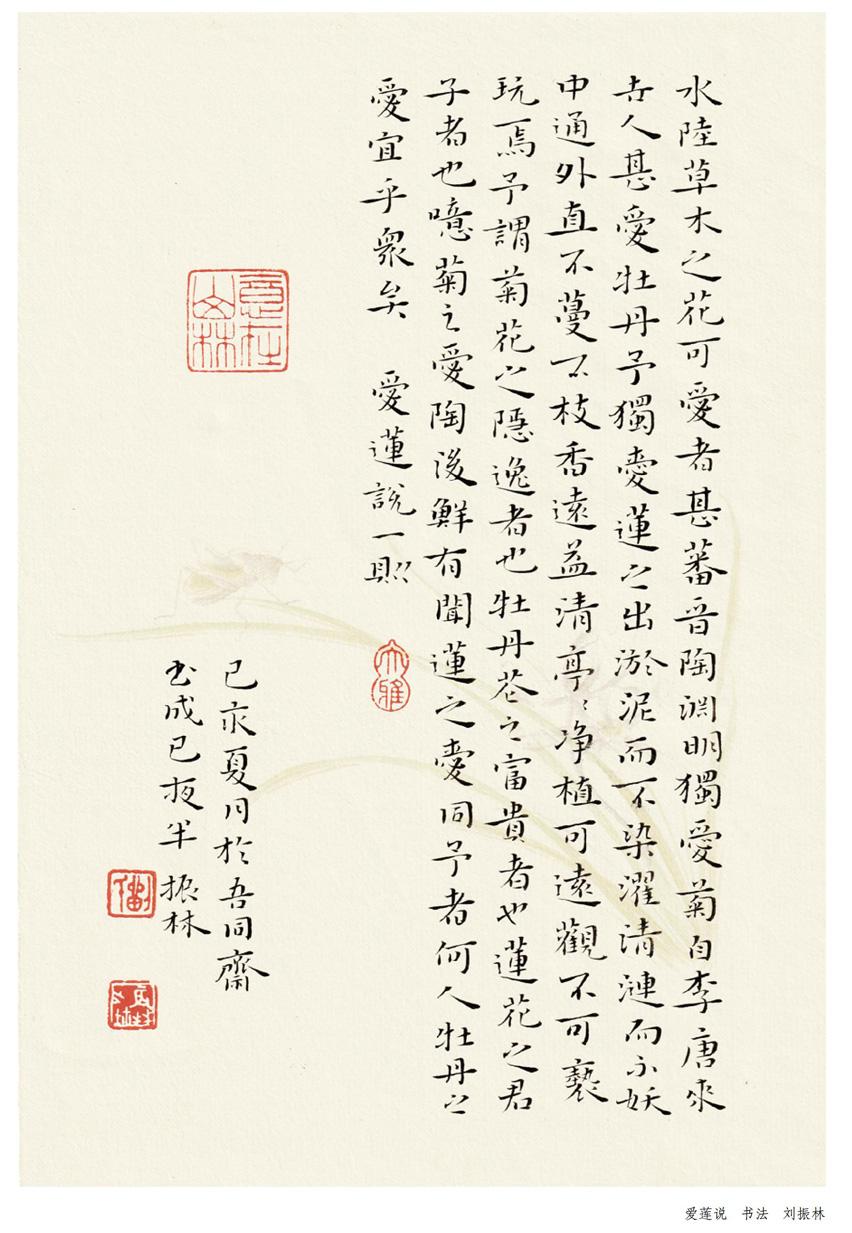 水陸草木之花可愛者甚蕃晋陶渊明獨愛菊自李唐來
世人甚愛牡丹予獨愛蓮之出淤泥而不染濯清漣而不妖
中通外直不蔓不枝香遠益清亭々净植可遠觀不可褻
玩焉予謂菊花之隱逸者也牡丹花之富貴者也蓮花之君
子者也噫菊之愛陶後鮮有聞蓮之愛同予者何人牡丹之
愛宜乎衆矣 愛蓮說一則
大雅
意在山林
己亥夏月於吾同齋
书成已夜半 振林
劉
爱莲说 书法 刘振林